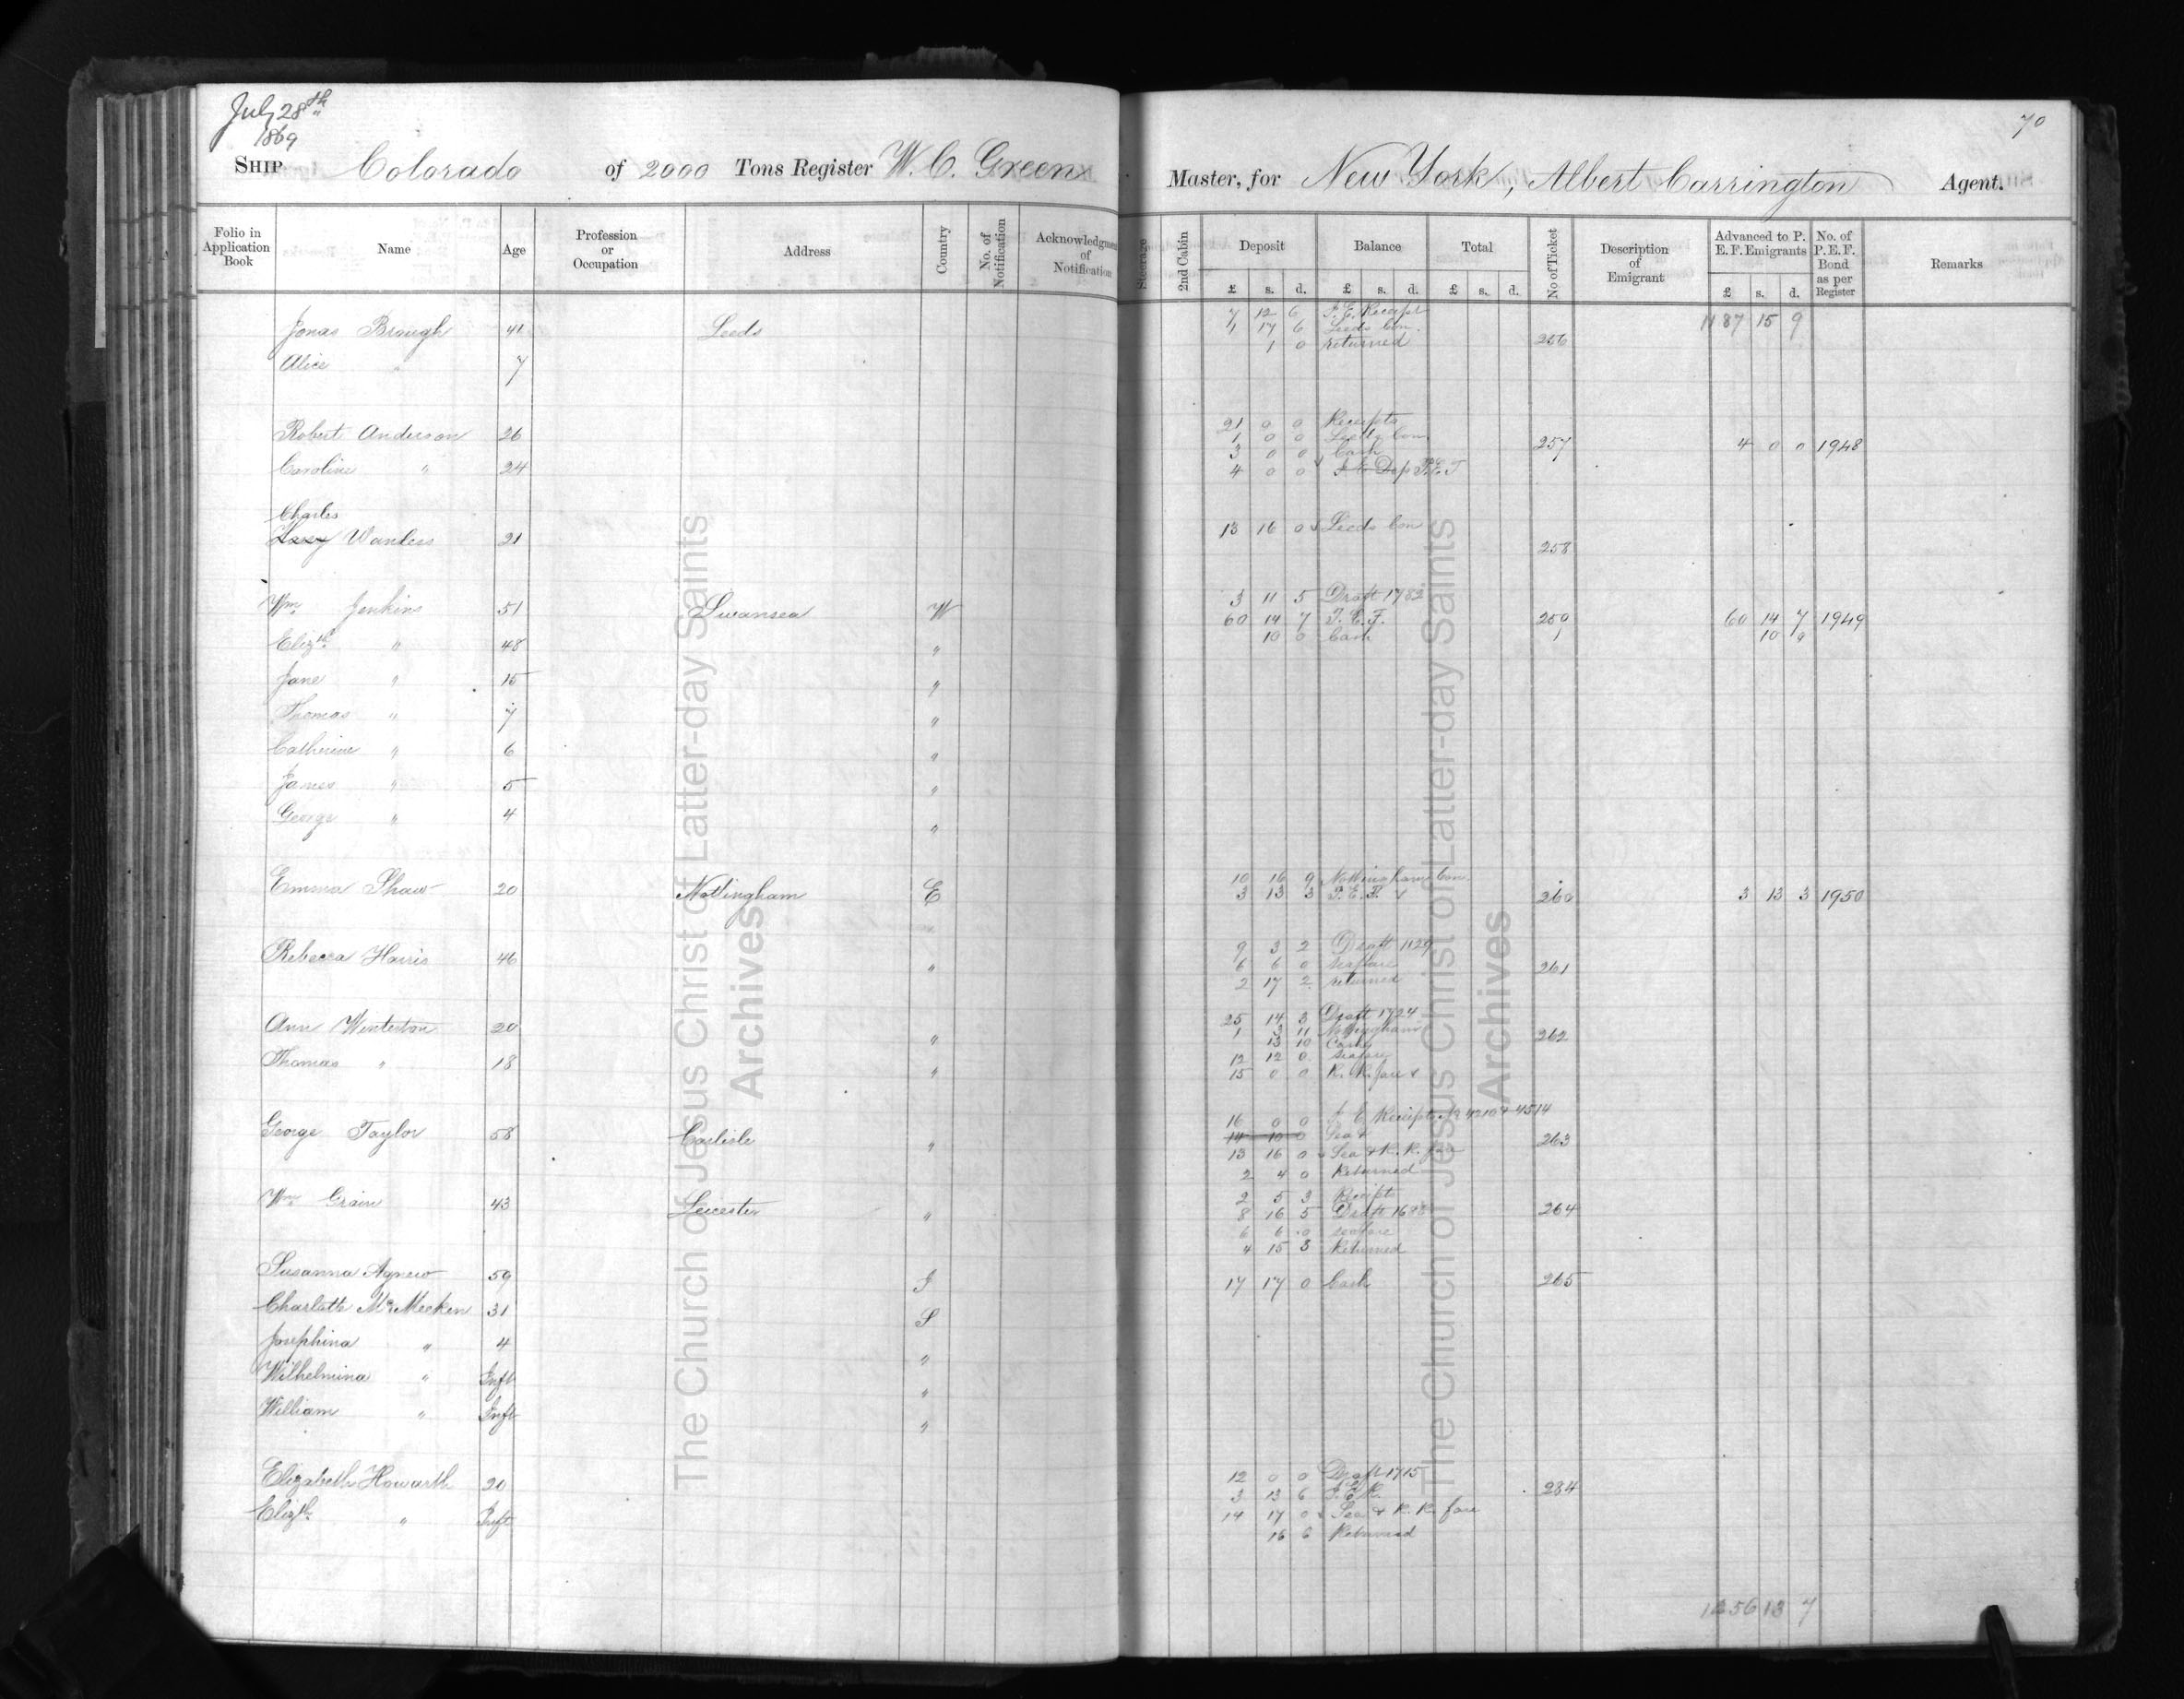 July 28th
1869
70
SHIP Colorado of 2000 Tons Register W. C. Green Master, for New York, Albert Carrington Agent.
Folio in Application Book Name Age Profession or Occupation Address Country No. of Notification Acknowledgment of Notification Steerage 2nd Cabin Deposit Balance Total No of Ticket Description of Emigrant Advanced to P. E. F. Emigrants No. of P. E. F. Bond as per Register Remarks
£ s. d. £ s. d. £ s. d. £ s. d.
7 12 6 Receipt
1187 15 9
Jonas Brough 41 Leeds 1 17 6 Leeds Con. 256
1 0 returned
Alice " 7
21 0 0 Receipts
Robert Anderson 26 1 0 0 Con. 257 4 0 0 1948
3 0 0 Cash
Caroline " 24 4 0 0
Charles
Wanless 21 13 16 0 Leeds Con 258
3 11 5 Draft 1782
Wm Jenkins 51 Swansea W 60 14 7 P. E. F. 259 60 14 7 1949
10 0 Cash 10 0
Elizth " 48 "
Jane " 15 "
Thomas " 7 "
Catherine " 6 "
James " 5 "
George " 4 "
10 16 9 Nottingham Con.
Emma Shaw 20 Nottingham E 3 13 3 P. E. F. 260 3 13 3 1950
9 3 2 Draft 1129
Rebecca Harris 46 " 6 6 0 seafare 261
2 17 2 returned
25 14 3 Draft 1724
Ann Winterton 20 " 1 3 11 Nottingham 262
13 10 Cash
12 12 0 seafare
Thomas " 18 " 15 0 0 R. R. fare
16 0 0 Receipts
George Taylor 58 Carlisle " 14 10 0 Sea 263
13 16 0 Sea & R. R. fare
2 4 0 Returned
2 5 3 Receipts
Wm Grain 43 Leicester " 8 16 5 Draft 264
6 6 0 seafare
4 15 8 Returned
Susanna Agnew 59 I 17 17 0 Cash 265
Charlotte McMecken 31 S
Josephina " 4 "
Wilhelmina " Inft "
William " Inft "
12 0 0 Draft 1715
Elizabeth Howarth 20 3 13 6 284
Elizth " Inft 14 17 0 Sea & R. R. fare
16 6 Returned
1256 13 7
The Church of Jesus Christ of Latter-day Saints
Archives
The Church of Jesus Christ of Latter-day Saints
Archives